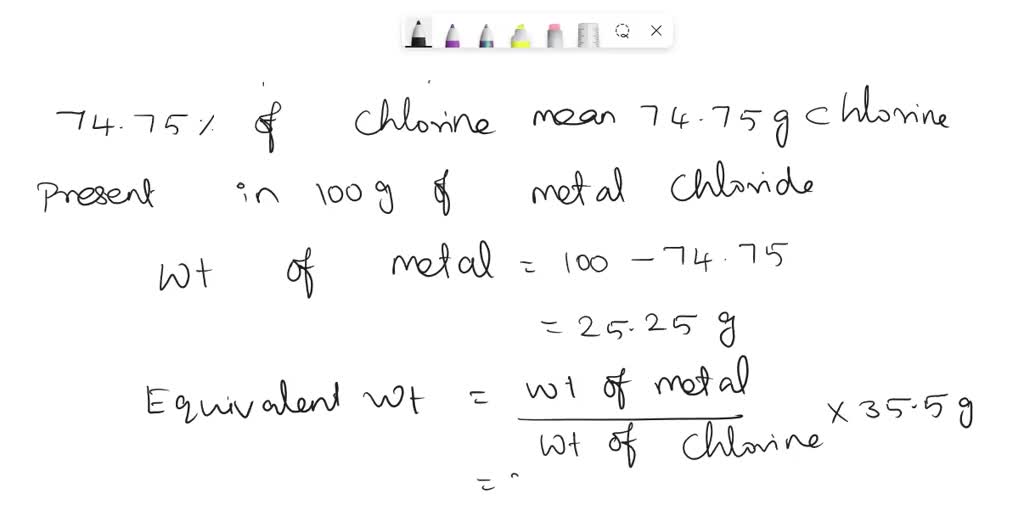 74.75% of chlorine mean 74.75g chlorine
Present in 100g of metal chloride
Wt of metal = 100 - 74.75
= 25.25 g
Equivalent Wt = wt of metal / wt of chlorine × 35.5g
=